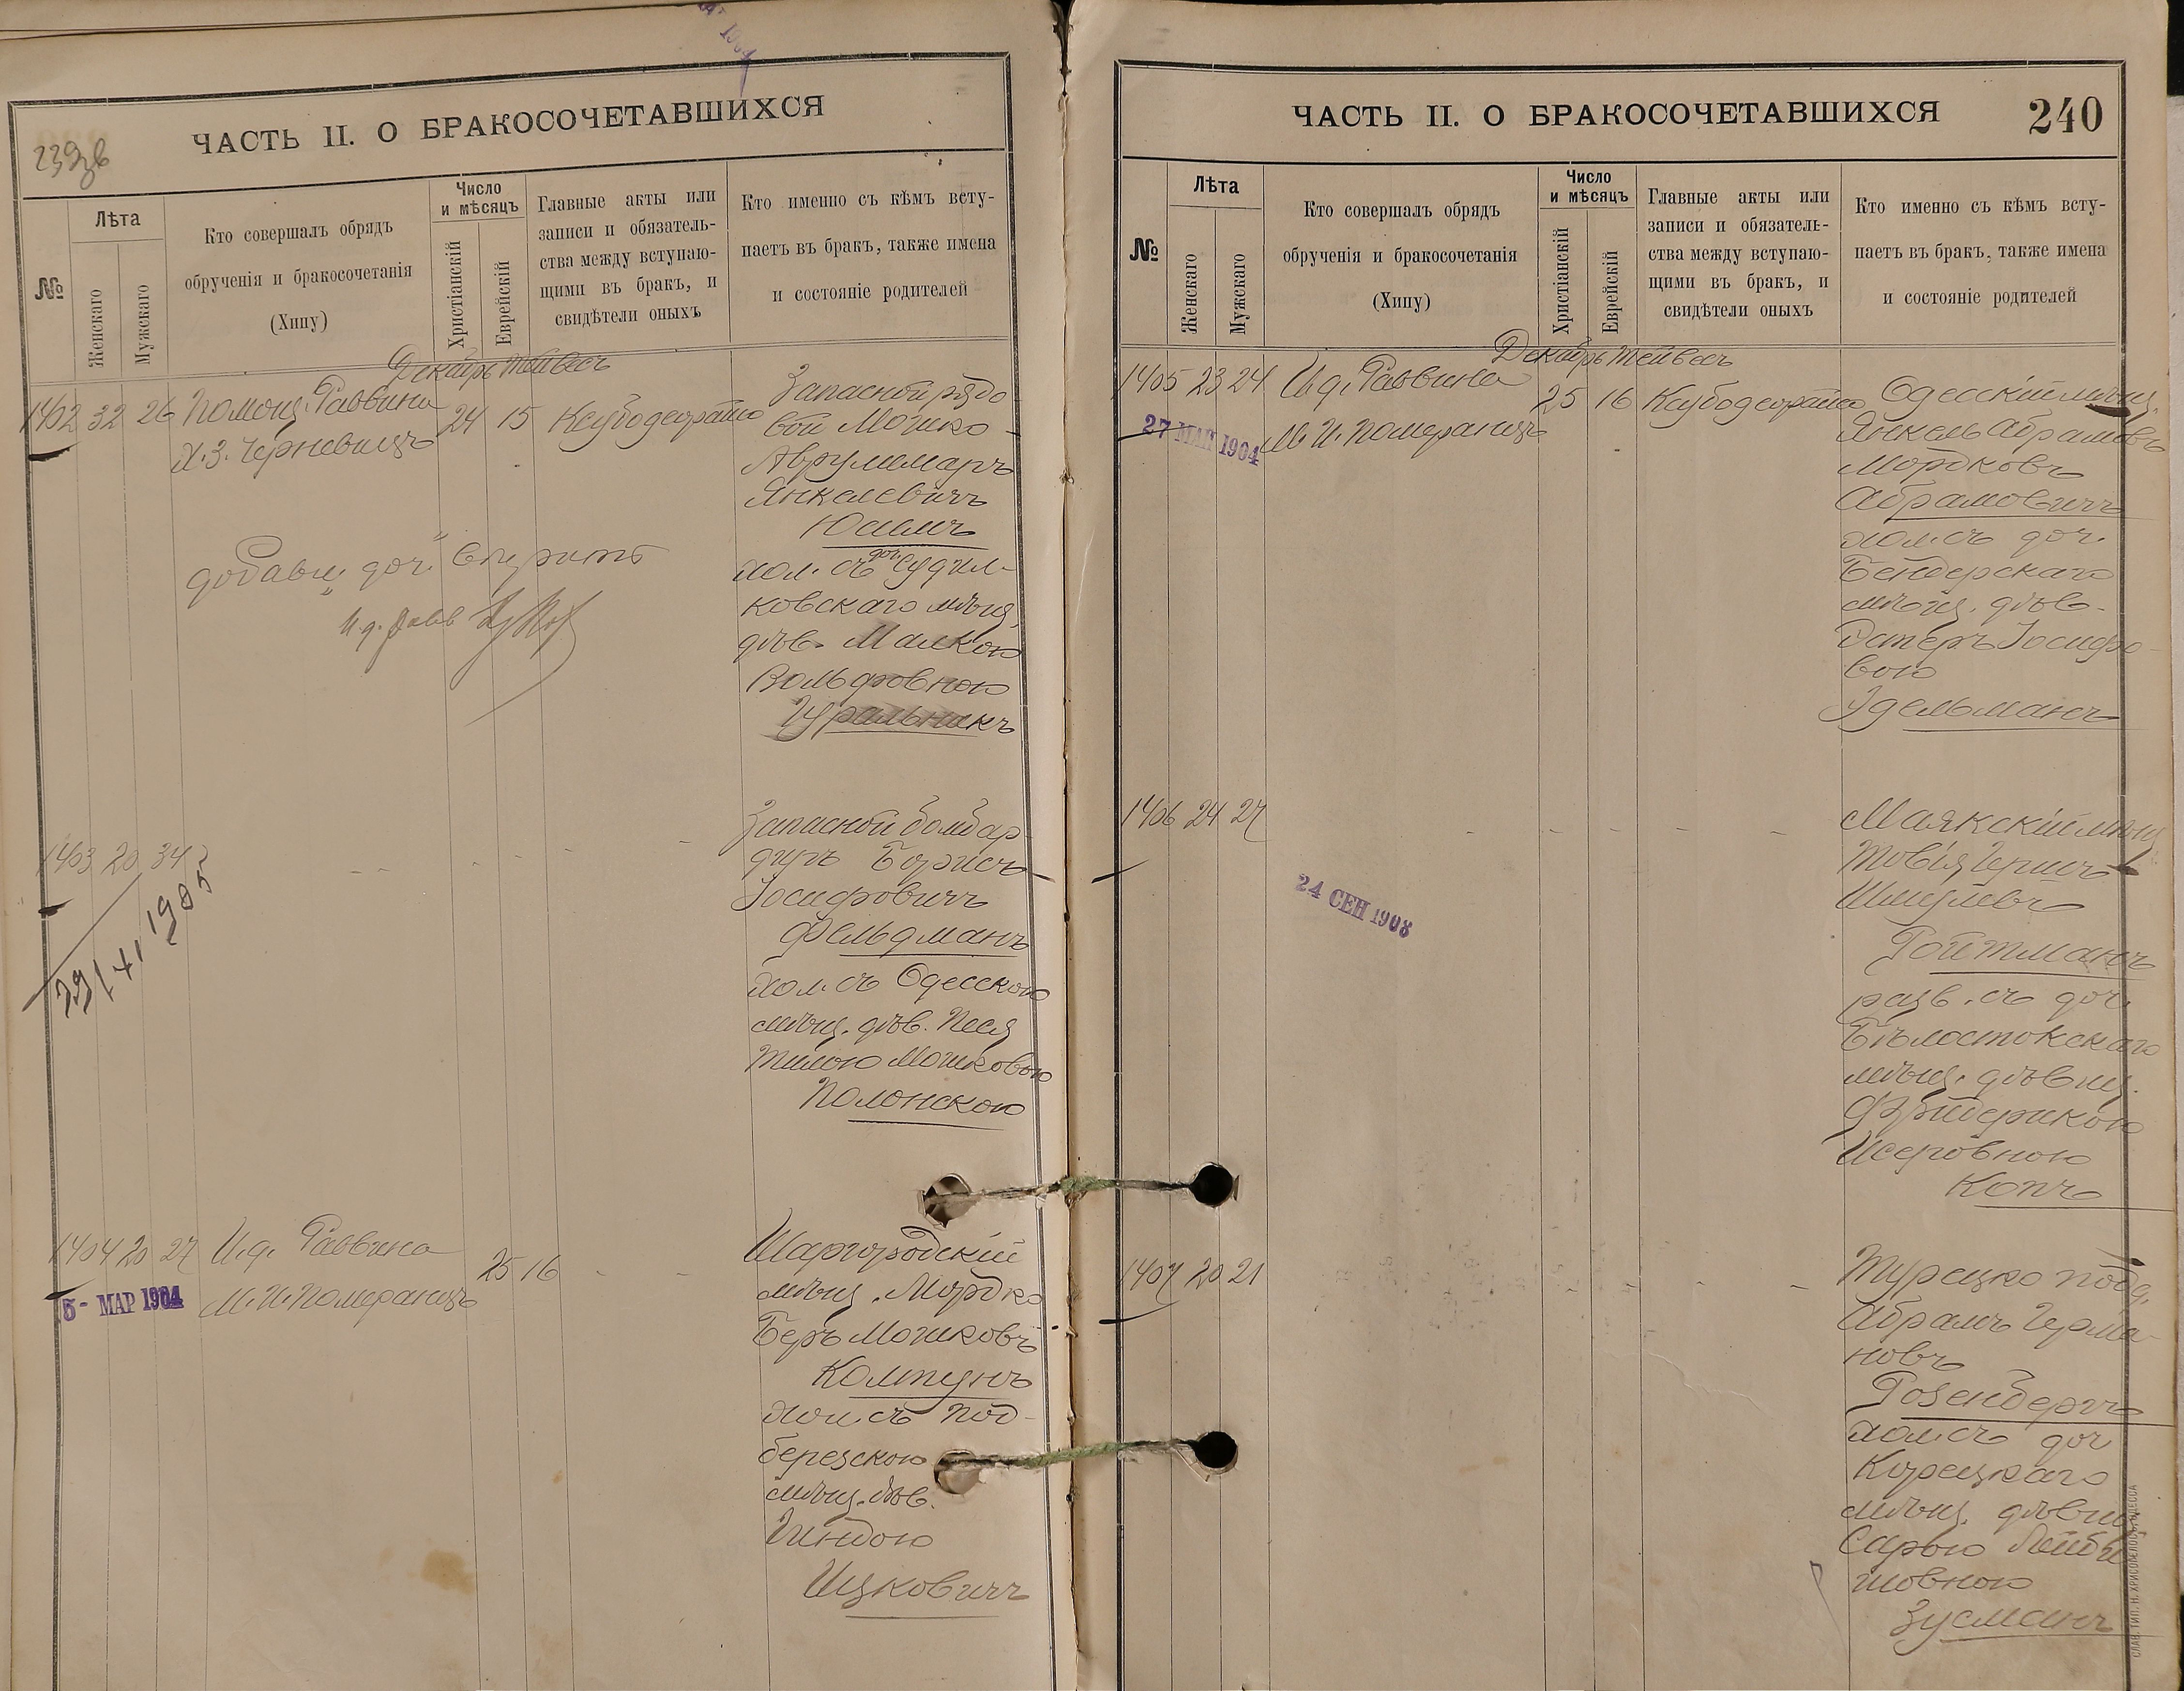 239об
ЧАСТЬ II. О БРАКОСОЧЕТАВШИХСЯ
№
Лѣта
Женскаго
Мужскаго
Кто совершалъ обрядъ
обрученія и бракосочетанія
(Хипу)
Число
и мѣсяцъ
Христіанскій
Еврейскій
Главные акты или
записи и обязатель-
ства между вступаю-
щими въ бракъ, и
свидѣтели оныхъ
Кто именно съ кѣмъ всту-
паетъ въ бракъ, также имена
и состояніе родителей
Декабрь Тейвесъ
1402 32 26 Помощ. Раввина 24 15
Х.З. Черневицъ
Запасной рядо-
вой Мошко-
Аврумемаръ
Янкелевичъ
хол. съ доч. Судил-
ковскаго мѣщ.
дѣв. Малкою
Вольфовною
Гуральникъ
добавл. "доч." вѣрить
И.д. Равв
1403 20 34
29/XI 1905
Запасной бомбар-
диръ Борисъ
Іосифовичъ
Фельдманъ
хол. съ Одесскою
мѣщ. дѣв. Песя
Полонскою
1404 20 27 И.д. Раввина 25 16
М.И. Померанцъ
5- МАР 1904
Шаргородскій
мѣщ. Мордко
Беръ Мошковъ
Колтунъ
хол. съ Под-
березскою
мѣщ. дѣв.
Гиндою
Ицковичъ
ЧАСТЬ II. О БРАКОСОЧЕТАВШИХСЯ
240
№
Лѣта
Женскаго
Мужскаго
Кто совершалъ обрядъ
обрученія и бракосочетанія
(Хипу)
Число
и мѣсяцъ
Христіанскій
Еврейскій
Главные акты или
записи и обязатель-
ства между вступаю-
щими въ бракъ, и
свидѣтели оныхъ
Кто именно съ кѣмъ всту-
паетъ въ бракъ, также имена
и состояніе родителей
Декабрь Тейвесъ
1405 23 24 И.д. Раввина 25 16
М.И. Померанцъ
27 МАЙ 1904
Одесскій мѣщ.
Янкель Абрамовъ
Мордковъ
Абрамовичъ
хол. съ доч.
Бендерскаго
мѣщ. дѣв.
Эстеръ Іосифо-
вою
Эдельманъ
1406 24 27
24 СЕН 1908
Маякскій мѣщ.
Товія Герисъ
Шмулевъ
Ройтманъ
разв. съ доч.
Бѣлостокскаго
мѣщ. дѣвиц.
Фридерикою
Исеровною
Копъ
1407 20 21
Турецко подд.
Абрамъ Герма-
новъ
Розенбергъ
хол. съ доч
Корецкаго
мѣщ. дѣвиц
Сарою Лейби-
шовною
Зусманъ
СЛАВ. ТИП. Н. ХРИСОГЕЛОСЪ, ОДЕССА